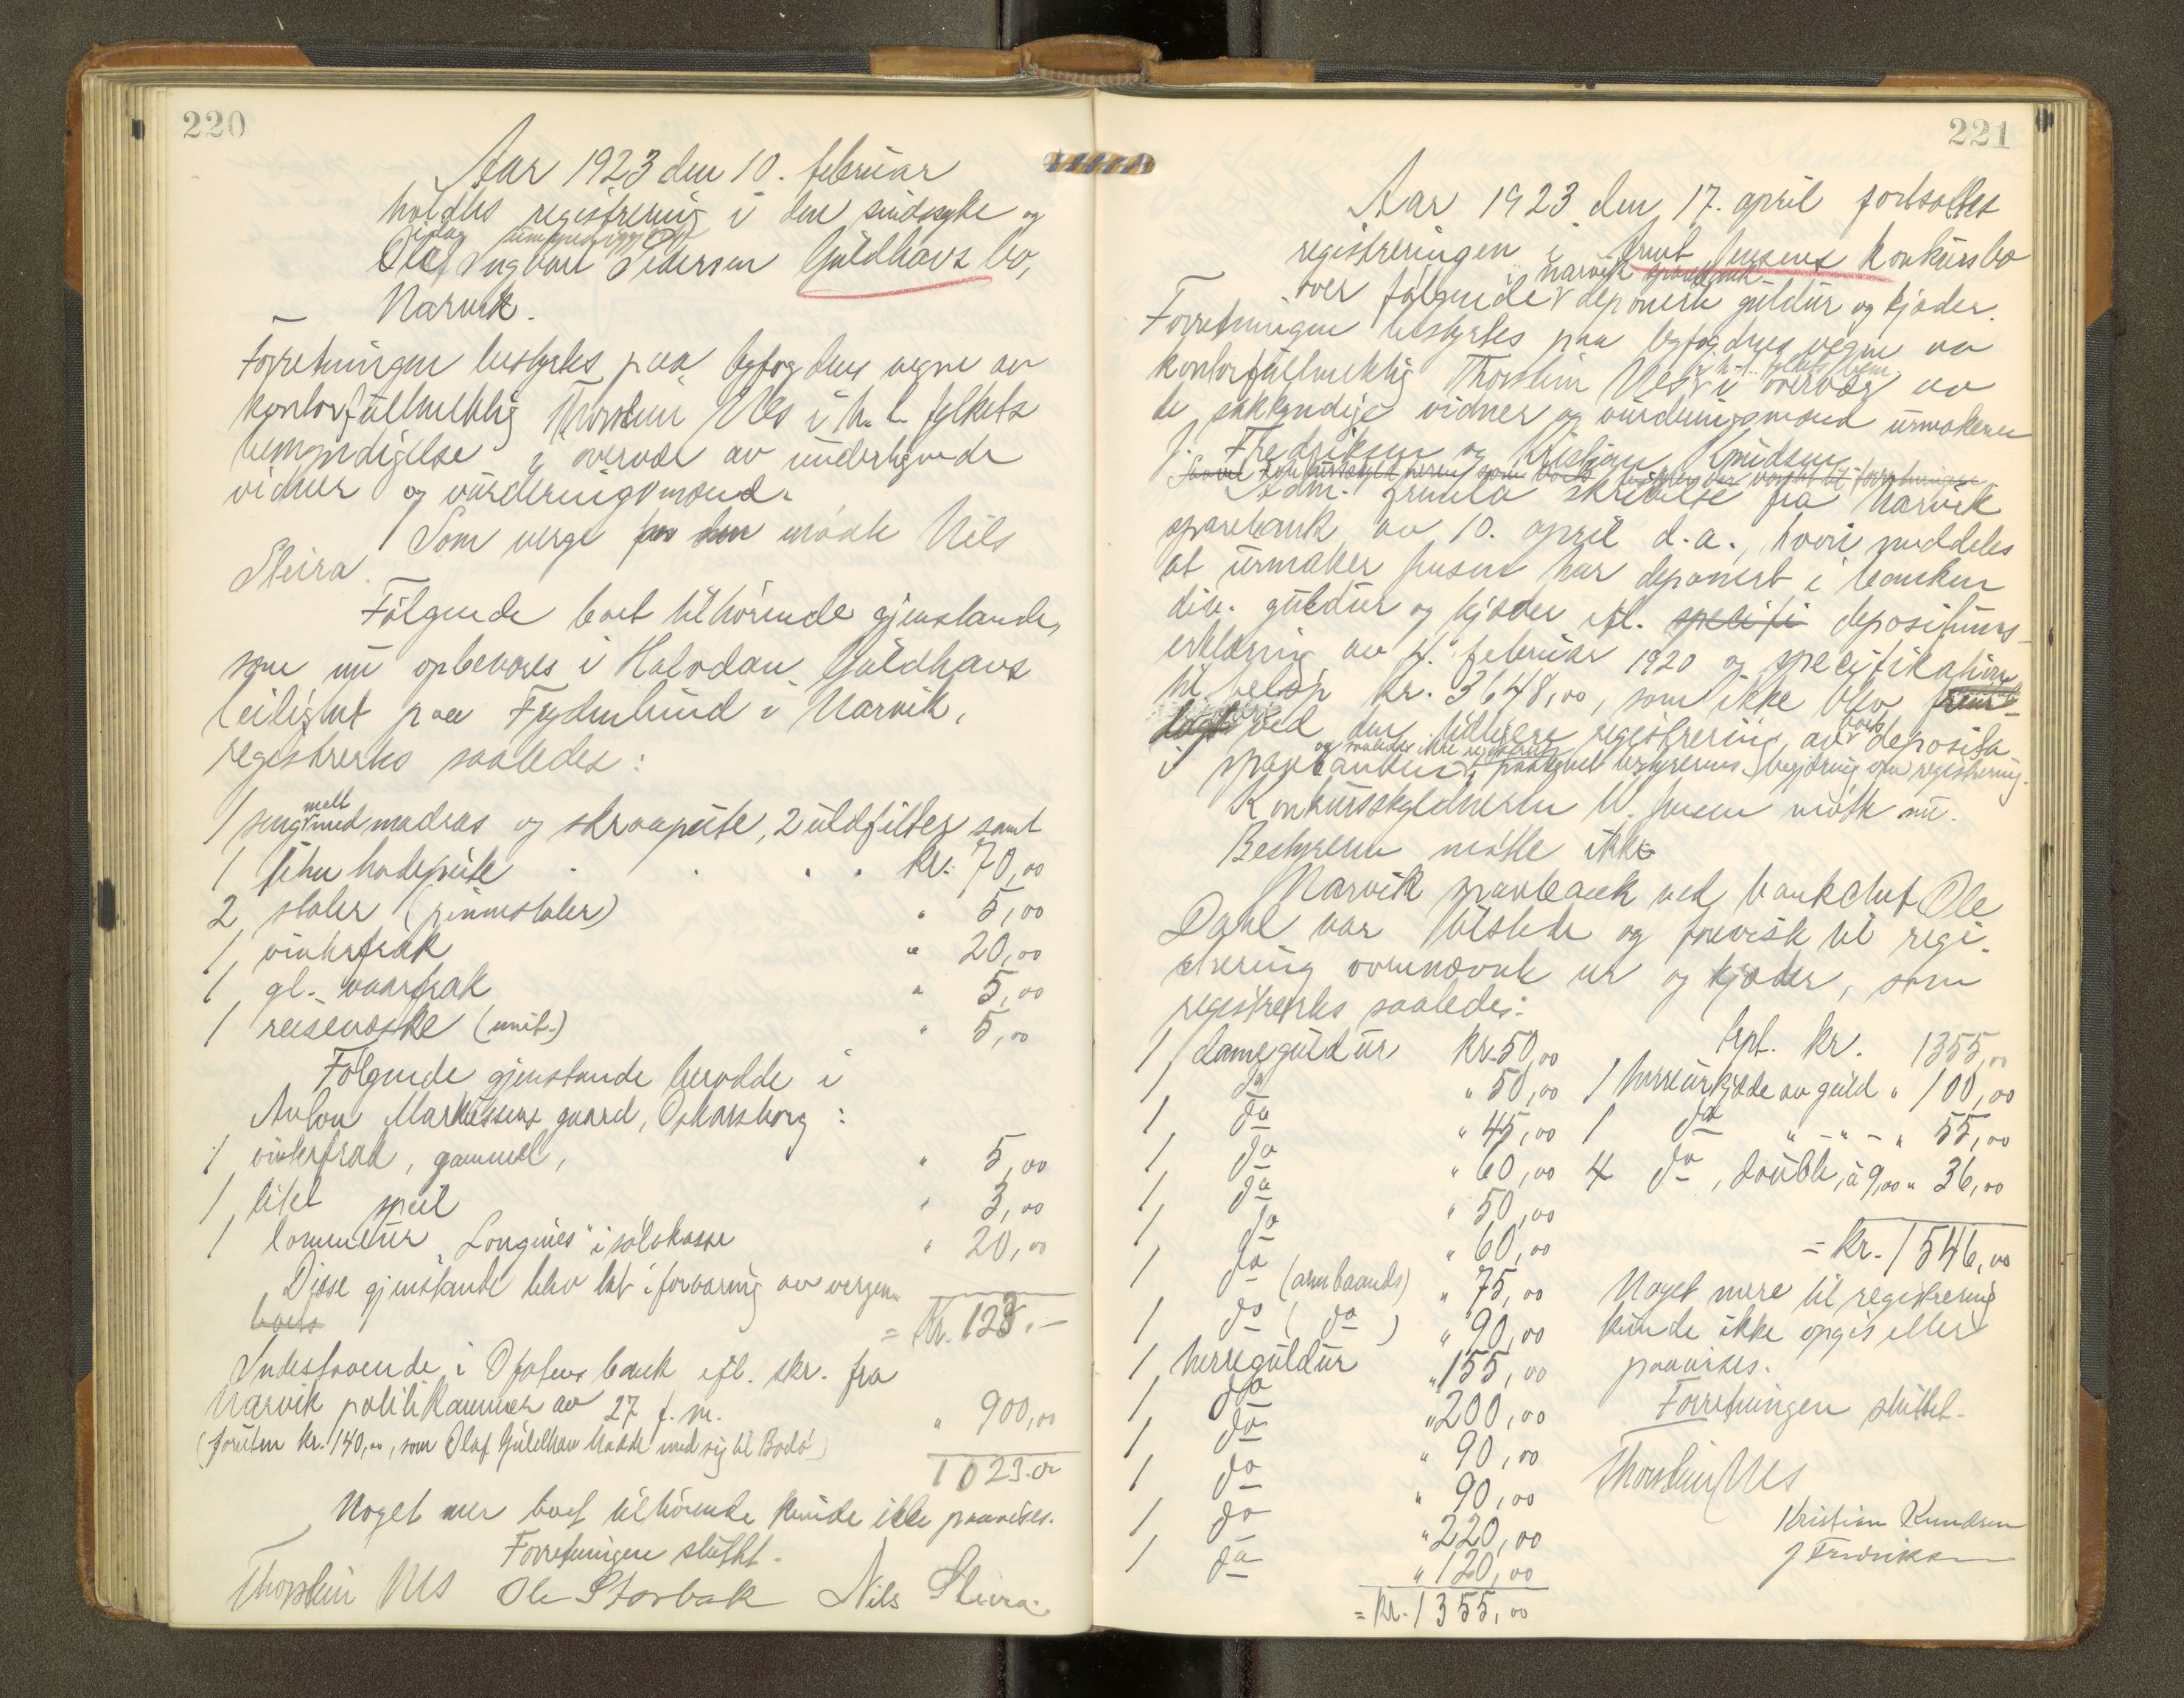 220
Aar 1923 den 10. februar
holdtes registrering i den sindssyke og
idag umyndiggjorte
Olaf Ingvart Pedersen Guldhavs bo,
Narvik.
Forretningen bestyrtes paa byfogdens vegne av
kontorfuldmektig Thorstein Nes i h. t. fylkets
bemyndigelse i overvær av undertegnede
vidner og vurderingsmænd.
Som verge møtte Nils
Steira.
Følgende boet tilhørende gjenstande,
som nu opbevares i Halvdan Guldhavs
leilighet paa Frydenlund i Narvik,
registrertes saaledes:
1 seng med madras og skraapute, 2 uldfilter samt
1 liten hodepute . . . . kr. 70,00
2 stoler (pinnestoler) " 5,00
1 vinterfrak " 20,00
1 gl. vaarfrak " 5,00
1 reisevæske (imit.) " 5,00
Følgende gjenstande beroddde i
Anton Markussens gaard, Oskarsborg:
1 vinterfrak, gammel, " 5,00
1 litet speil " 3,00
1 lommeur "Longines" i sølvkasse " 20,00
Disse gjenstande blev tat i forvaring av vergen.
boets
= Kr. 123.-
Indestaaende i Ofotens bank ifl. skr. fra
Narvik politikammer av 27 f. m. " 900,00
(foruten kr. 140,00, som Olaf Guldhav hadde med sig til Bodø)
1023.00
Noget mer boet tilhørende kunde ikke paavises.
Forretningen sluttet.
Thorstein Nes Ole Storbak Nils Steira.
221
Aar 1923 den 17. april fortsattes
registreringen i Arnt Jensens konkursbo
i Narvik sparebank
over følgende deponerte guldur og kjæder.
Forretningen bestyrtes paa byfogdens vegne av
kontorfuldmektig Thorstein Nes i h. t. fylkets bem. i overvær av
de sakkyndige vidner og vurderingsmænd urmakerne
J. Fredriksen og Kristian Knudsen.
Adm. fremla skrivelse fra Narvik
sparebank av 10. april d.a., hvori meddeles
at urmaker Jensen har deponert i banken
div. guldur og kjæder ifl. specifi depositums-
erklæring av 4. februar 1920 og specifikation
til beløp kr. 3648,00, som ikke blev
ved den tidligere registrering av boets deposita
og saaledes ikke registrert
i sparebanken, paa bestyrerens begjæring om registrering.
Konkursskyldneren Jensen møtte nu.
Bestyreren møtte ikke
Narvik sparebank ved bankchef Ole
Dahl var tilstede og forevist til regi-
strering ovennævnte ur og kjæder, som
registrertes saaledes:
1 dameguldur kr. 50,00
1 do " 50,00
1 do " 45,00
1 do " 60,00
1 do " 50,00
1 do " 60,00
1 do (armbaands) " 75,00
1 do ( do ) " 90,00
1 herreguldur " 155,00
1 do " 200,00
1 do " 90,00
1 do " 90,00
1 do " 220,00
1 do " 120,00
= Kr. 1355,00
Trpt. kr. 1355,00
1 herreurkjæde av guld " 100,00
1 do " - " - " 55,00
4 do, double, à 9,00 " 36,00
= Kr. 1546,00
Noget mere til registrering
kunde ikke opgis eller
paavises.
Forretningen sluttet.
Thorstein Nes
Kristian Knudsen
J Fredriksen